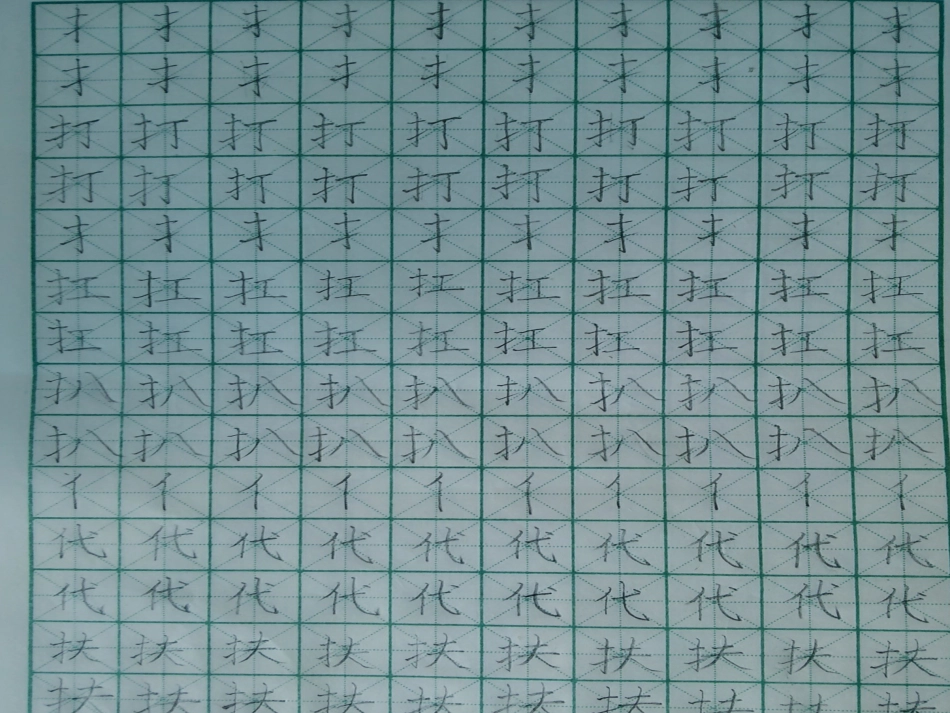 扌扌扌扌扌扌扌扌扌扌
扌扌扌扌扌扌扌扌扌扌
打打打打打打打打打打
打打打打打打打打打打
扌扌扌扌扌扌扌扌扌扌
扛扛扛扛扛扛扛扛扛扛
扛扛扛扛扛扛扛扛扛扛
扒扒扒扒扒扒扒扒扒扒
扒扒扒扒扒扒扒扒扒扒
亻亻亻亻亻亻亻亻亻亻
代代代代代代代代代代
代代代代代代代代代代
扶扶扶扶扶扶扶扶扶扶
扶扶扶扶扶扶扶扶扶扶